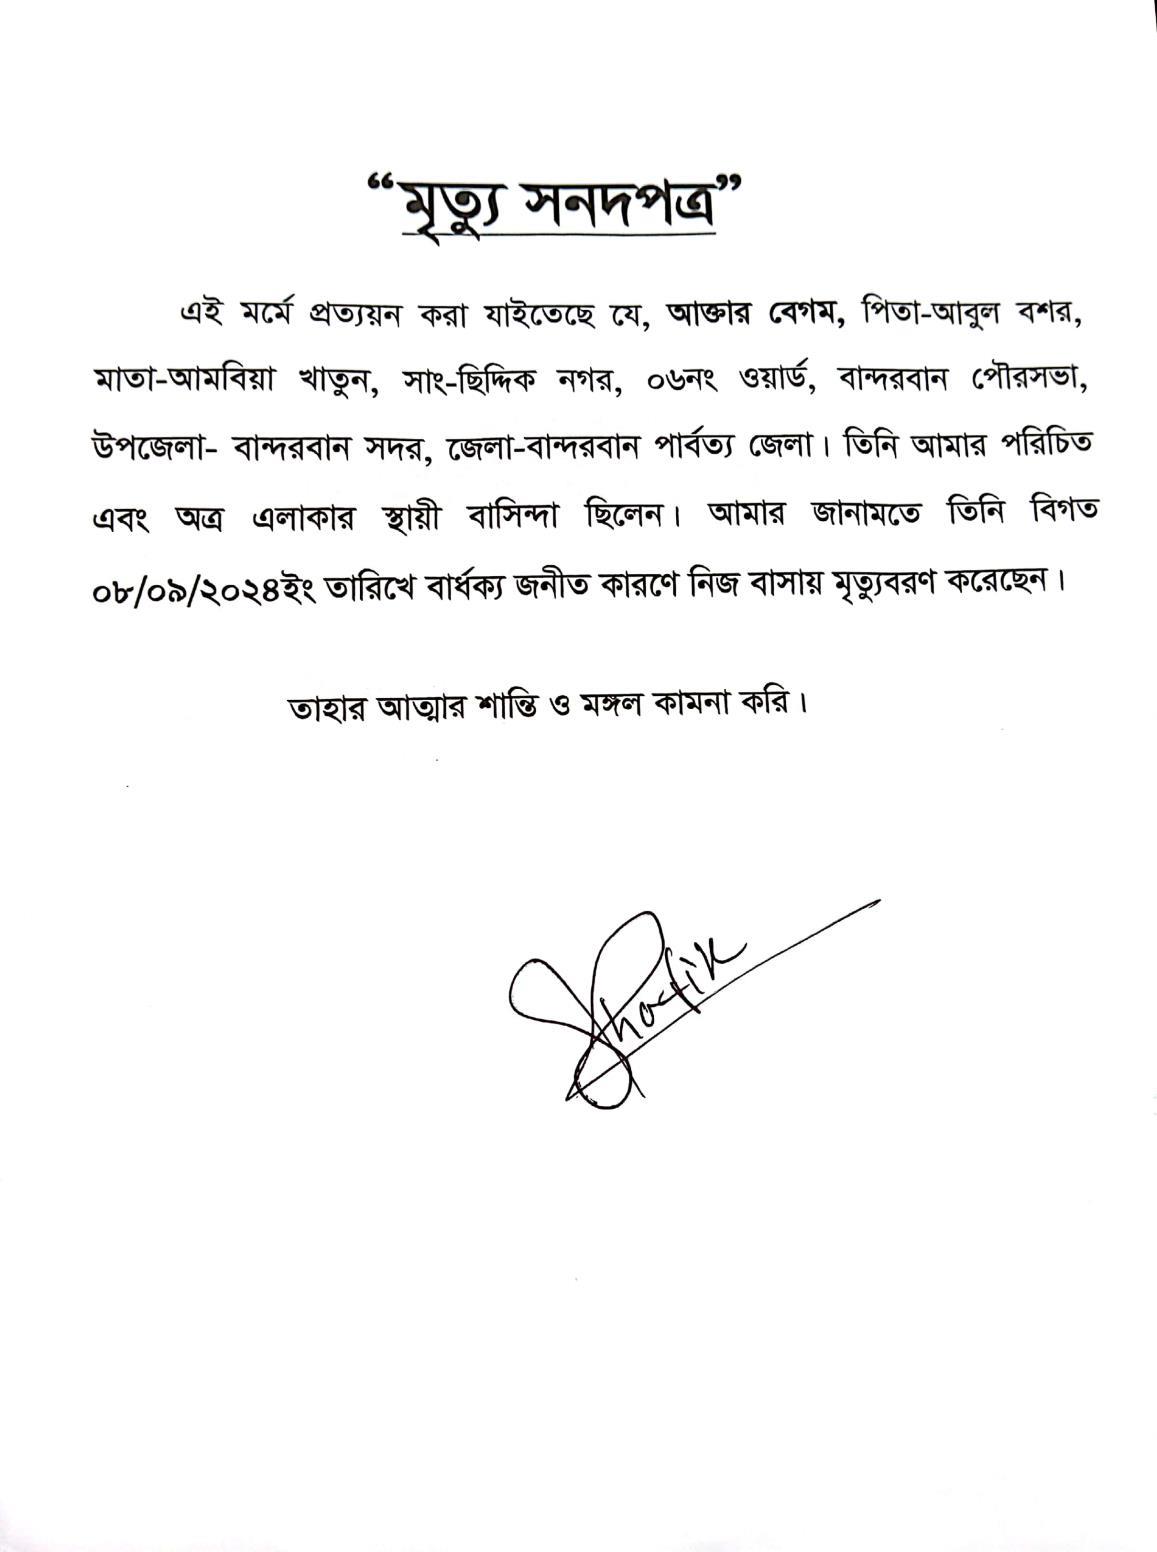 “মৃত্যু সনদপত্র”
এই মর্মে প্রত্যয়ন করা যাইতেছে যে, আক্তার বেগম, পিতা-আবুল বশর,
মাতা-আমবিয়া খাতুন, সাং-ছিদ্দিক নগর, ০৬নং ওয়ার্ড, বান্দরবান পৌরসভা,
উপজেলা- বান্দরবান সদর, জেলা-বান্দরবান পার্বত্য জেলা। তিনি আমার পরিচিত
এবং অত্র এলাকার স্থায়ী বাসিন্দা ছিলেন। আমার জানামতে তিনি বিগত
০৮/০৯/২০২৪ইং তারিখে বার্ধক্য জনীত কারণে নিজ বাসায় মৃত্যুবরণ করেছেন।
তাহার আত্মার শান্তি ও মঙ্গল কামনা করি।
Shafik